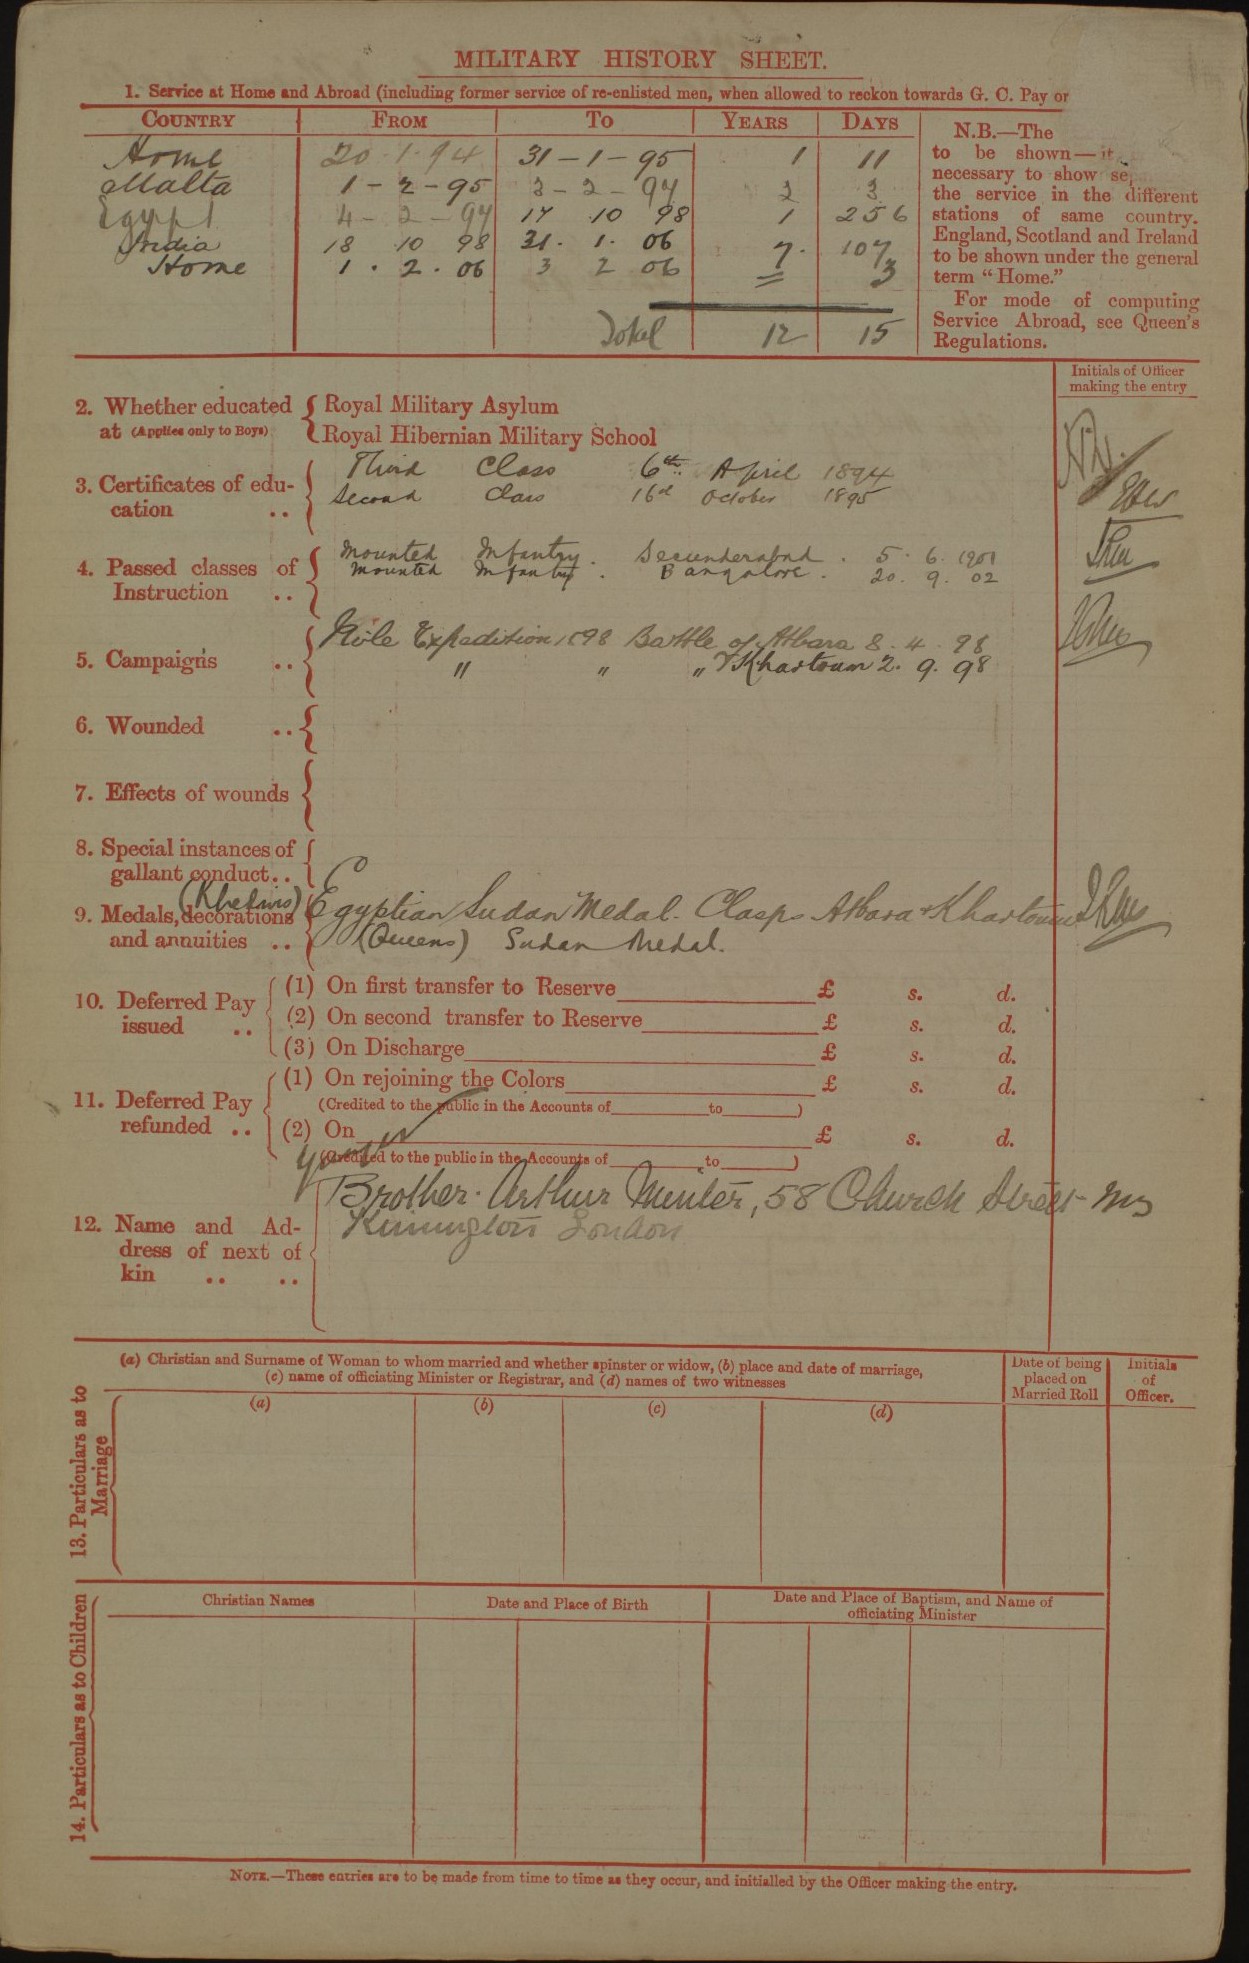 MILITARY HISTORY SHEET.
1. Service at Home and Abroad (including former service of re-enlisted men, when allowed to reckon towards G. C. Pay or
COUNTRY FROM TO YEARS DAYS
Home 20 . 1 . 94 31 - 1 - 95 1 11
Malta 1 - 2 - 95 3 - 2 - 97 2 3
Egypt 4 - 2 - 97 17 10 98 1 256
India 18 10 98 31 . 1 . 06 7 . 107
Home 1 . 2 . 06 3 2 06 = 3
Total 12 15
N.B.—The
to be shown—it
necessary to show se
the service in the different
stations of same country.
England, Scotland and Ireland
to be shown under the general
term "Home."
For mode of computing
Service Abroad, see Queen's
Regulations.
Initials of Officer
making the entry
2. Whether educated
at (Applies only to Boys)
Royal Military Asylum
Royal Hibernian Military School
3. Certificates of edu-
cation ..
Third Class 6th April 1894
Second Class 16th October 1895
4. Passed classes of
Instruction ..
Mounted Infantry . Secunderabad . 5 . 6 . 1901
Mounted Infantry . Bangalore . 20 . 9 . 02
5. Campaigns ..
Nile Expedition 1898 Battle of Atbara 8 . 4 . 98
" " " Khartoum 2 . 9 . 98
6. Wounded ..
7. Effects of wounds
8. Special instances of
gallant conduct..
9. Medals, decorations
and annuities ..
(Khedivis)
Egyptian Sudan Medal. Clasps Atbara + Khartoum
(Queens) Sudan Medal.
10. Deferred Pay
issued ..
(1) On first transfer to Reserve £ s. d.
(2) On second transfer to Reserve £ s. d.
(3) On Discharge £ s. d.
11. Deferred Pay
refunded ..
(1) On rejoining the Colors £ s. d.
(Credited to the public in the Accounts of to )
(2) On £ s. d.
(Credited to the public in the Accounts of to )
12. Name and Ad-
dress of next of
kin .. ..
younger
Brother. Arthur Minter, 58 Church Street
Kennington London
13. Particulars as to
Marriage
(a) Christian and Surname of Woman to whom married and whether spinster or widow, (b) place and date of marriage,
(c) name of officiating Minister or Registrar, and (d) names of two witnesses
Date of being
placed on
Married Roll
Initials
of
Officer.
(a) (b) (c) (d)
14. Particulars as to Children
Christian Names Date and Place of Birth
Date and Place of Baptism, and Name of
officiating Minister
NOTE.—These entries are to be made from time to time as they occur, and initialled by the Officer making the entry.